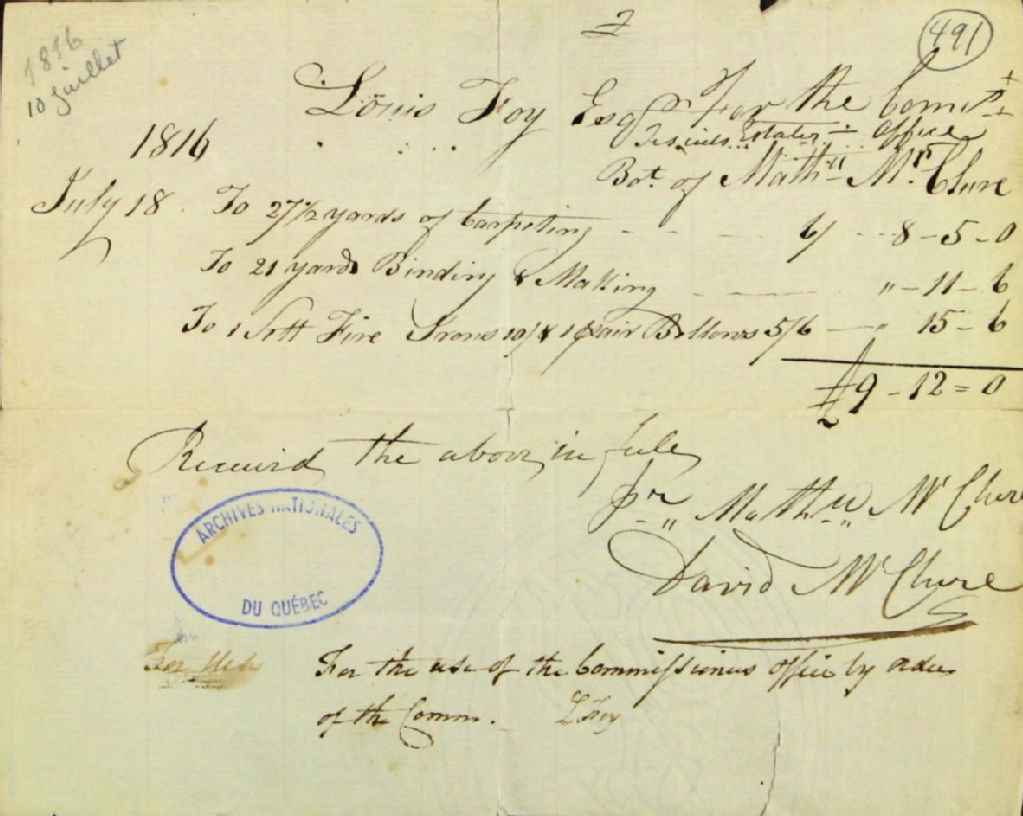 1816
10 Juillet
2
491
Louis Foy Esqr For the Comrs
Jesuits Estates Office
1816
Bot. of Mathw McClure
July 18 To 27 1/2 yards of Carpeting 6/ 8-5-0
To 21 yards Binding & Making " - 11 - 6
To 1 Sett Fire Irons 10/ & 1 pair Bellows 5/6 " 15 - 6
£9-12=0
Received the above in full
pr Mathw McClure
David McClure
ARCHIVES NATIONALES
DU QUÉBEC
For the use of the Commissioners office by order
of the Comm. L Foy